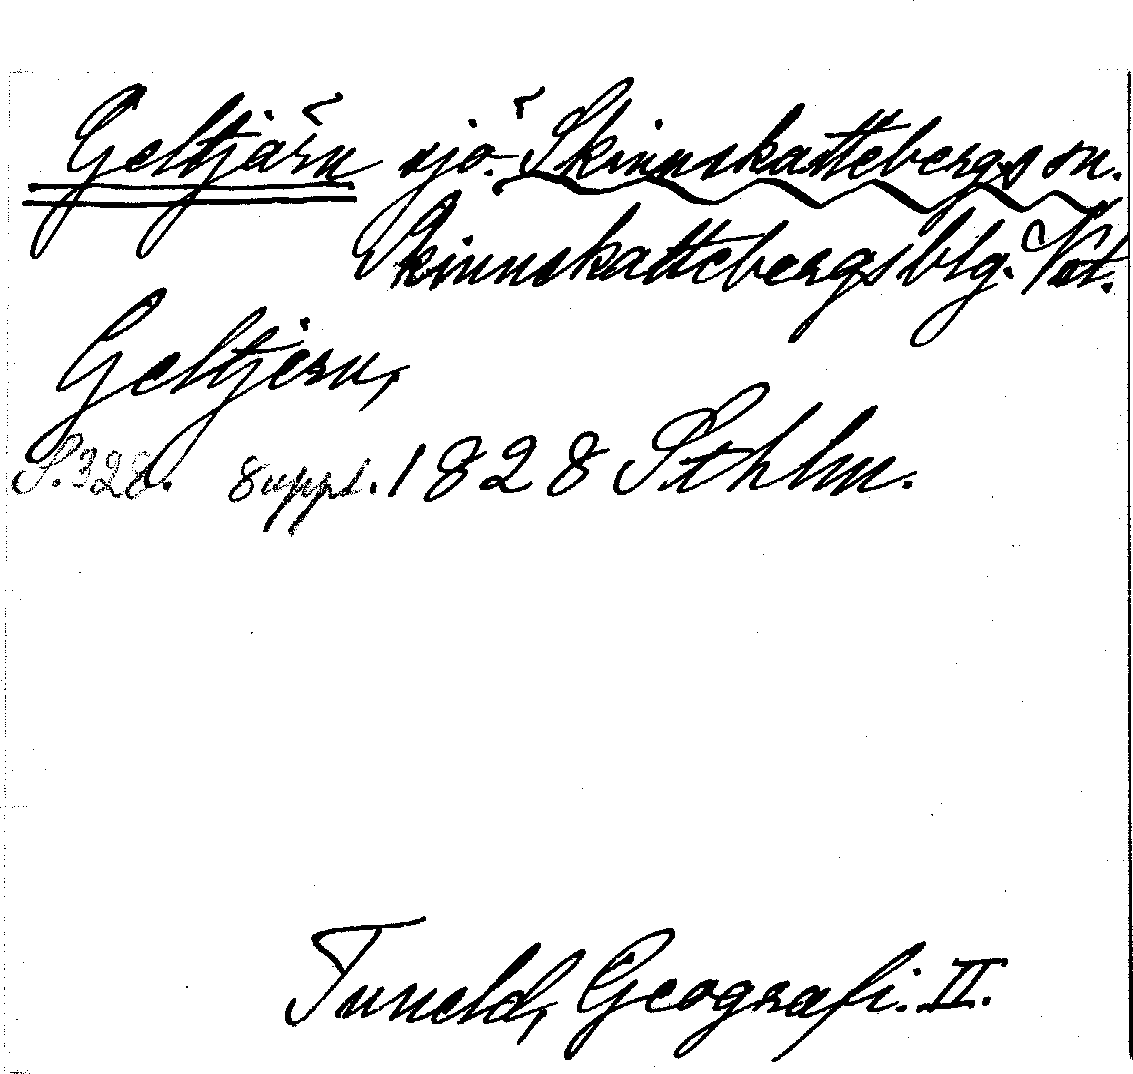 Geltjärn sjö. Skinnskattebergs sn.
Skinnskattebergs blg. Vst.
Geltjern,
S. 328. 8 uppl. 1828 Sthlm.
Tuneld, Geografi. II.